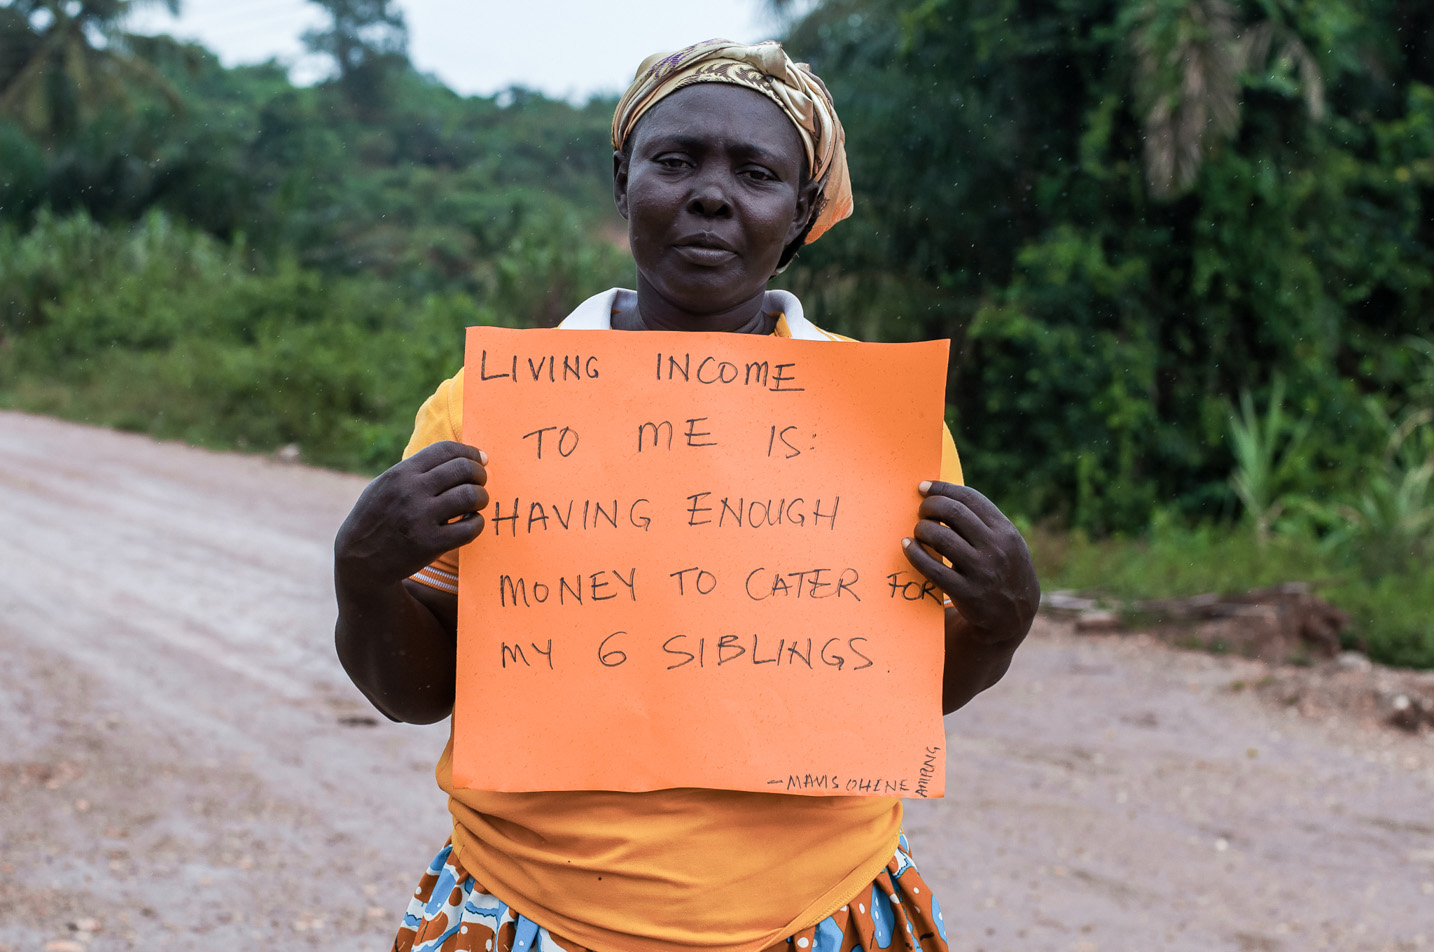 LIVING INCOME
TO ME IS:
HAVING ENOUGH
MONEY TO CATER FOR
MY 6 SIBLINGS.
- MAVIS OHENE
AMPONG